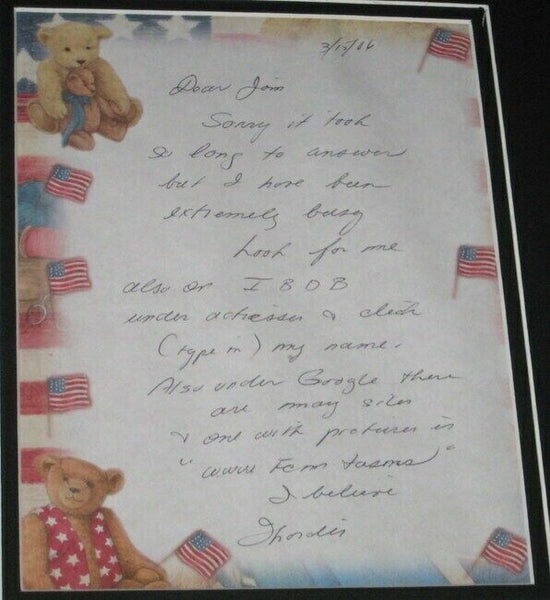 3/15/06
Dear Jim
Sorry it took
so long to answer
but I have been
extremely busy
Look for me
also on IBDB
under actresses & click
(type in) my name.
Also under Google there
are many sites
& one with pictures is
"www
I believe